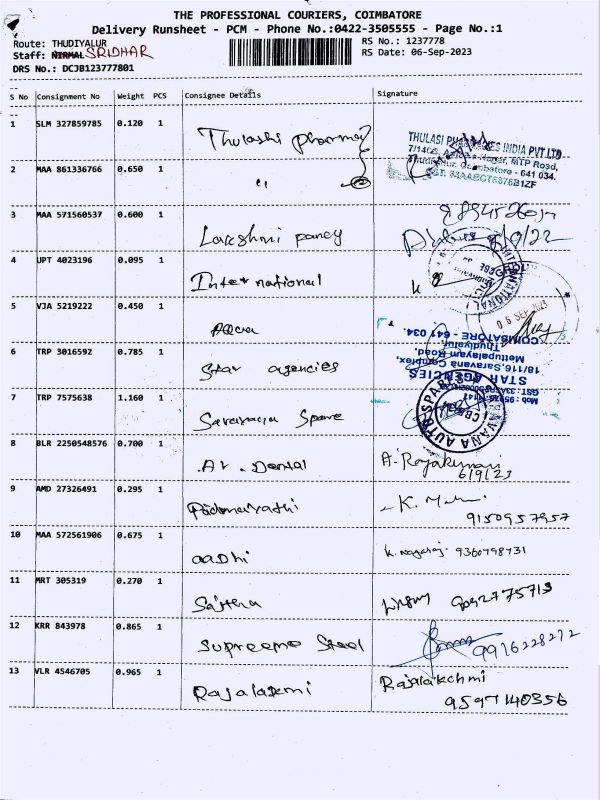 THE PROFESSIONAL COURIERS, COIMBATORE
Delivery Runsheet - PCM - Phone No.:0422-3505555 - Page No.:1
Route: THUDIYALUR
RS No.: 1237778
Staff: NIRMAL SRIDHAR
RS Date: 06-Sep-2023
DRS No.: DCJB123777801
S No Consignment No Weight PCS Consignee Details Signature
1 SLM 327859785 0.120 1 Thulashi pharmacy
THULASI PHARMACIES INDIA PVT LTD
MTP Road,
Coimbatore - 641 034.
2 MAA 861336766 0.650 1 "
3 MAA 571560537 0.600 1 Lakshmi pancy
4 UPT 4023196 0.095 1 International
5 VJA 5219222 0.450 1 Aqua
06 SEP 2023
6 TRP 3016592 0.785 1 Star agencies
STAR AGENCIES
18/116, Saravana Complex,
Mettupalayam Road,
Thudiyalur,
COIMBATORE - 641 034.
7 TRP 7575638 1.160 1 Saravana Spare
SARAVANA AUTO SPARES
CBE
8 BLR 2250548576 0.700 1 Ar. Dental A. Rajakumari
6/9/23
9 AMD 27326491 0.295 1 Padmavathi
9150957957
10 MAA 572561906 0.675 1 aadhi K. nagaraj 9360798731
11 MRT 305319 0.270 1 9092775713
12 KRR 843978 0.865 1 Supreeme Steel 9916228272
13 VLR 4546705 0.965 1 Rajalaxmi Rajalakchmi
9597140356